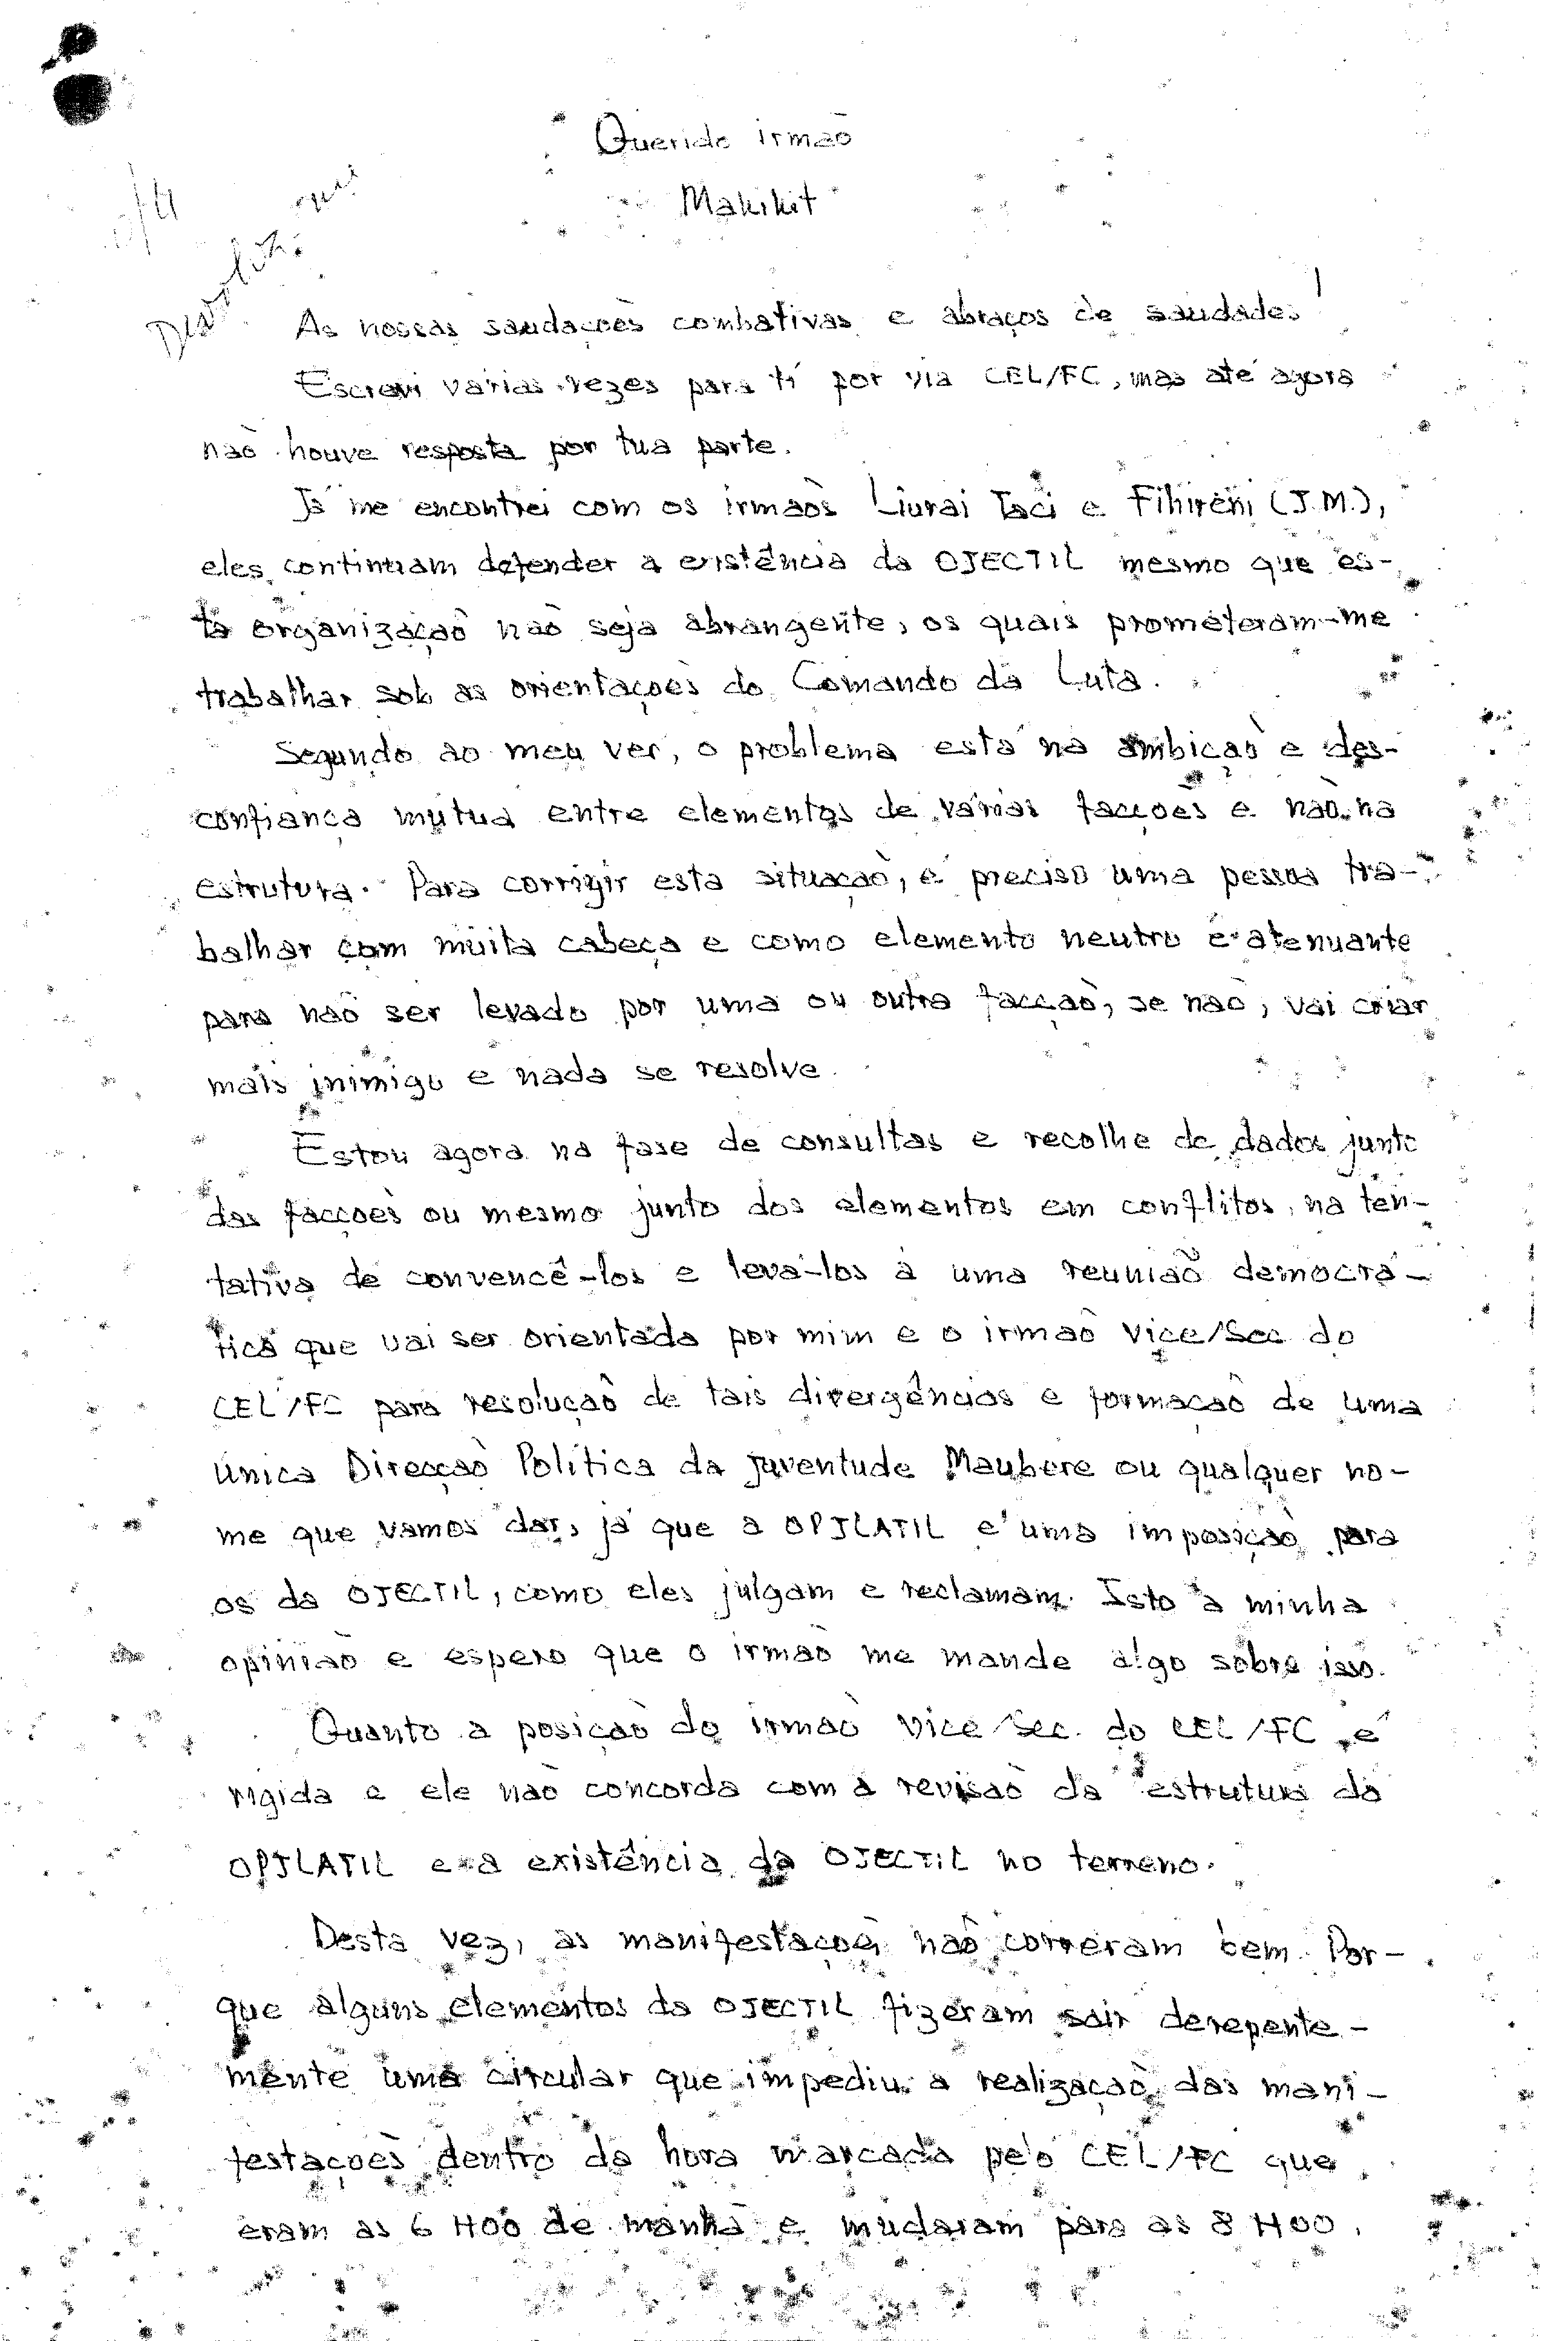 Querido irmaõ
Makikit
As nossas saudaçoẽs combativas e abraços de saudades!
Escrevi varias vezes para ti por via CEL/FC, mas até agora
naõ houve resposta por tua parte.
Já me encontrei com os irmaõs Liurai Taci e Fihireni (J.M.),
eles continuam defender a existência da OJECTIL mesmo que es-
ta organizaçaõ naõ seja abrangente, os quais prometeram-me
trabalhar sob as orientaçoẽs do Comando da Luta.
Segundo ao meu ver, o problema está na ambiçaõ e des-
confiança mútua entre elementos de várias facçoẽs e naõ na
estrutura. Para corrigir esta situaçaõ, é preciso uma pessoa tra-
balhar com muita cabeça e como elemento neutro e atenuante
para naõ ser levado por uma ou outra facçaõ, se naõ, vai criar
mais inimigo e nada se resolve.
Estou agora na fase de consultas e recolhe de dados junto
das facçoẽs ou mesmo junto dos elementos em conflitos, na ten-
tativa de convencê-los e levá-los à uma reuniaõ democrá-
tica que vai ser orientada por mim e o irmaõ Vice/Sec do
CEL/FC para resoluçaõ de tais divergências e formaçaõ de uma
única Direcçaõ Política da juventude Maubere ou qualquer no-
me que vamos dar, já que a OPJLATIL é uma imposiçaõ para
os da OJECTIL, como eles julgam e reclamam. Isto à minha
opiniaõ e espero que o irmaõ me mande algo sobre isso.
Quanto a posiçaõ do irmaõ Vice/Sec. do CEL/FC é
rigida e ele naõ concorda com a revisaõ da estrutura da
OPJLATIL e a existência da OJECTIL no terreno.
Desta vez, as manifestaçoẽs naõ correram bem. Por-
que alguns elementos da OJECTIL fizeram sair derepente-
mente uma circular que impediu a realizaçaõ das mani-
festaçoẽs dentro da hora marcada pelo CEL/FC que
eram as 6 H00 de manhã e mudaram para as 8 H00.